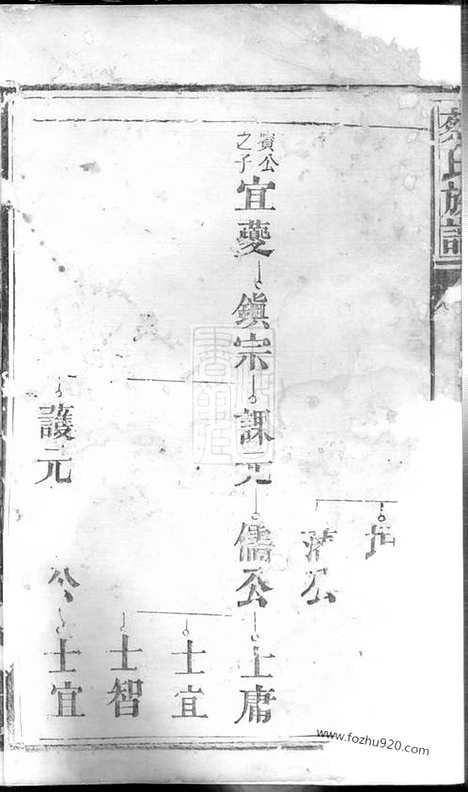 蔡氏族譜
公
賓公之子
宜夔
鎮宗
課元
儒公
士庸
士宜
士智
護元
公
士宜
www.fozhu920.com